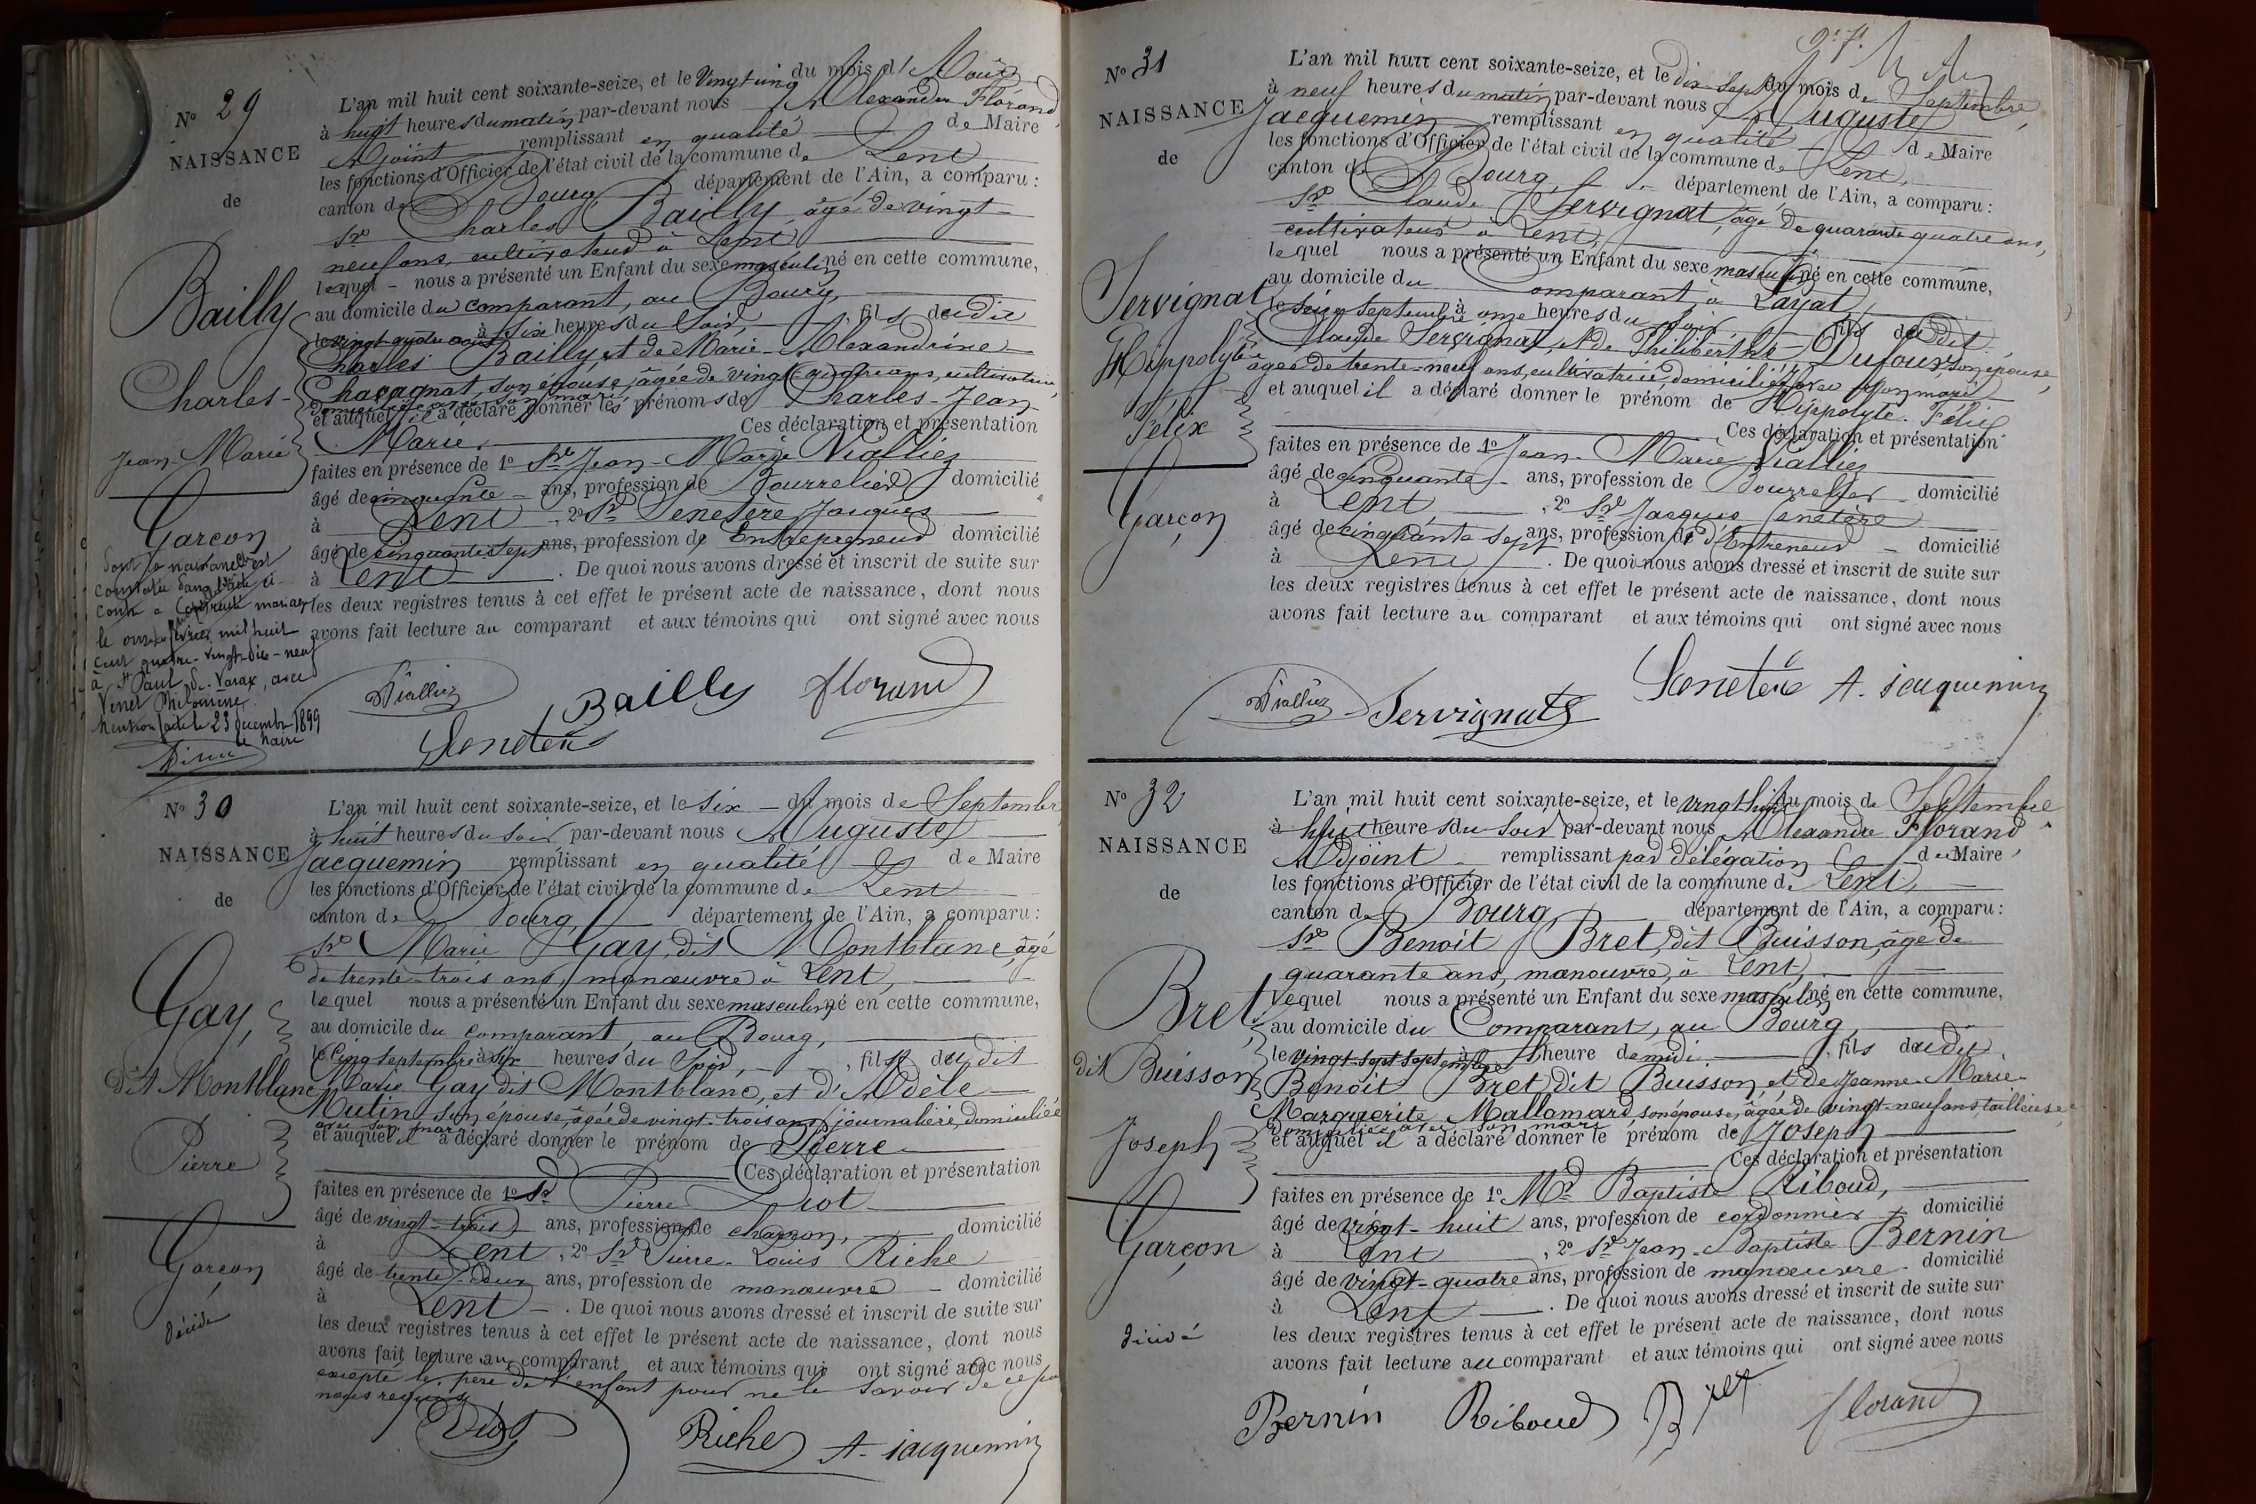 N° 29
NAISSANCE
de
Bailly
Charles-
Jean-Marie
Garçon
Dont la naissance est
constatée dans l'acte ci-
contre a contracté mariage
le onze mil huit
cent quatre-vingt-dix-neuf
à St Paul de Varax, avec
Venet Philomène.
Mention faite le 23 décembre 1899
le Maire
L'an mil huit cent soixante-seize, et le Vingt cinq du mois d'Août
à huit heures du matin par-devant nous Alexandre Florand,
Adjoint remplissant en qualité de Maire
les fonctions d'Officier de l'état civil de la commune de Lent
canton de Bourg, département de l'Ain, a comparu :
Sr Charles Bailly, âgé de vingt-
neuf ans, cultivateur à Lent
lequel nous a présenté un Enfant du sexe masculin né en cette commune,
au domicile du comparant, au Bourg,
le vingt-quatre août à six heures du soir, fils dudit
Charles Bailly et de Marie-Alexandrine
Chacagnat, son épouse, âgée de vingt-quatre ans, cultivatrice,
domiciliée avec son mari
et auquel il a déclaré donner les prénoms de Charles-Jean-
Marie. Ces déclaration et présentation
faites en présence de 1° Sr Jean-Marie Vialliez
âgé de cinquante ans, profession de Bourrelier domicilié
à Lent, 2° Sr Senetère Jacques
âgé de cinquante sept ans, profession de Entrepreneur domicilié
à Lent. De quoi nous avons dressé et inscrit de suite sur
les deux registres tenus à cet effet le présent acte de naissance, dont nous
avons fait lecture au comparant et aux témoins qui ont signé avec nous
Vialliez Bailly Florand
Senetère
N° 30
NAISSANCE
de
Gay,
dit Montblanc
Pierre
Garçon
décédé
L'an mil huit cent soixante-seize, et le six du mois de Septembre
à huit heures du soir, par-devant nous Auguste
Jacquemin remplissant en qualité de Maire
les fonctions d'Officier de l'état civil de la commune de Lent
canton de Bourg, département de l'Ain, a comparu :
Sr Marie Gay, dit Montblanc, âgé
de trente-trois ans, manœuvre à Lent,
lequel nous a présenté un Enfant du sexe masculin né en cette commune,
au domicile du comparant, au Bourg,
le cinq septembre à six heures du soir, fils dudit
Marie Gay dit Montblanc, et d'Adèle
Mutin son épouse, âgée de vingt-trois ans, journalière, domiciliée
avec son mari
et auquel il a déclaré donner le prénom de Pierre
Ces déclaration et présentation
faites en présence de 1° Sr Pierre Diot
âgé de vingt-trois ans, profession de charron, domicilié
à Lent, 2° Sr Pierre-Louis Riche
âgé de trente deux ans, profession de manœuvre domicilié
à Lent. De quoi nous avons dressé et inscrit de suite sur
les deux registres tenus à cet effet le présent acte de naissance, dont nous
avons fait lecture au comparant et aux témoins qui ont signé avec nous
excepté le père de l'enfant pour ne le savoir de ce par
nous requis
Diot Riche A. jacquemin
N° 31
NAISSANCE
de
Servignat
Hippolyte
Félix
Garçon
L'an mil huit cent soixante-seize, et le dix-sept du mois de Septembre,
à neuf heures du matin par-devant nous Auguste
Jacquemin remplissant en qualité de Maire
les fonctions d'Officier de l'état civil de la commune de Lent,
canton de Bourg, département de l'Ain, a comparu :
Sr Claude Servignat, âgé de quarante quatre ans,
cultivateur à Lent,
lequel nous a présenté un Enfant du sexe masculin né en cette commune,
au domicile du Comparant, à Layat
le seize septembre à onze heures du soir, fils dudit
Claude Servignat, et de Philiberthe Dufour, son épouse,
âgée de trente-neuf ans, cultivatrice, domiciliée avec son mari
et auquel il a déclaré donner le prénom de Hippolyte-Félix
Ces déclaration et présentation
faites en présence de 1° Jean-Marie Vialliez
âgé de cinquante ans, profession de Bourrelier domicilié
à Lent, 2° Sr Jacques Senetère
âgé de cinquante sept ans, profession d'Entreneur domicilié
à Lent. De quoi nous avons dressé et inscrit de suite sur
les deux registres tenus à cet effet le présent acte de naissance, dont nous
avons fait lecture au comparant et aux témoins qui ont signé avec nous
Vialliez Servignat Senetère A. jacquemin
N° 32
NAISSANCE
de
Bret,
dit Buisson
Joseph
Garçon
décédé
L'an mil huit cent soixante-seize, et le vingt-huit du mois de Septembre
à huit heures du soir par-devant nous Alexandre Florand
Adjoint remplissant par délégation du Maire,
les fonctions d'Officier de l'état civil de la commune de Lent,
canton de Bourg, département de l'Ain, a comparu :
Sr Benoit Bret, dit Buisson, âgé de
quarante ans, manœuvre, à Lent,
lequel nous a présenté un Enfant du sexe masculin né en cette commune,
au domicile du Comparant, au Bourg,
le vingt-sept septembre à heure de midi, fils dudit
Benoit Bret, dit Buisson, et de Jeanne-Marie-
Marguerite Mallamard, son épouse, âgée de vingt-neuf ans tailleuse
domiciliée avec son mari
et auquel il a déclaré donner le prénom de Joseph
Ces déclaration et présentation
faites en présence de 1° Mr Baptiste Riboud,
âgé de vingt-huit ans, profession de cordonnier, domicilié
à Lent, 2° Sr Jean-Baptiste Bernin
âgé de vingt-quatre ans, profession de manœuvre domicilié
à Lent. De quoi nous avons dressé et inscrit de suite sur
les deux registres tenus à cet effet le présent acte de naissance, dont nous
avons fait lecture au comparant et aux témoins qui ont signé avec nous
Bernin Riboud Bret Florand